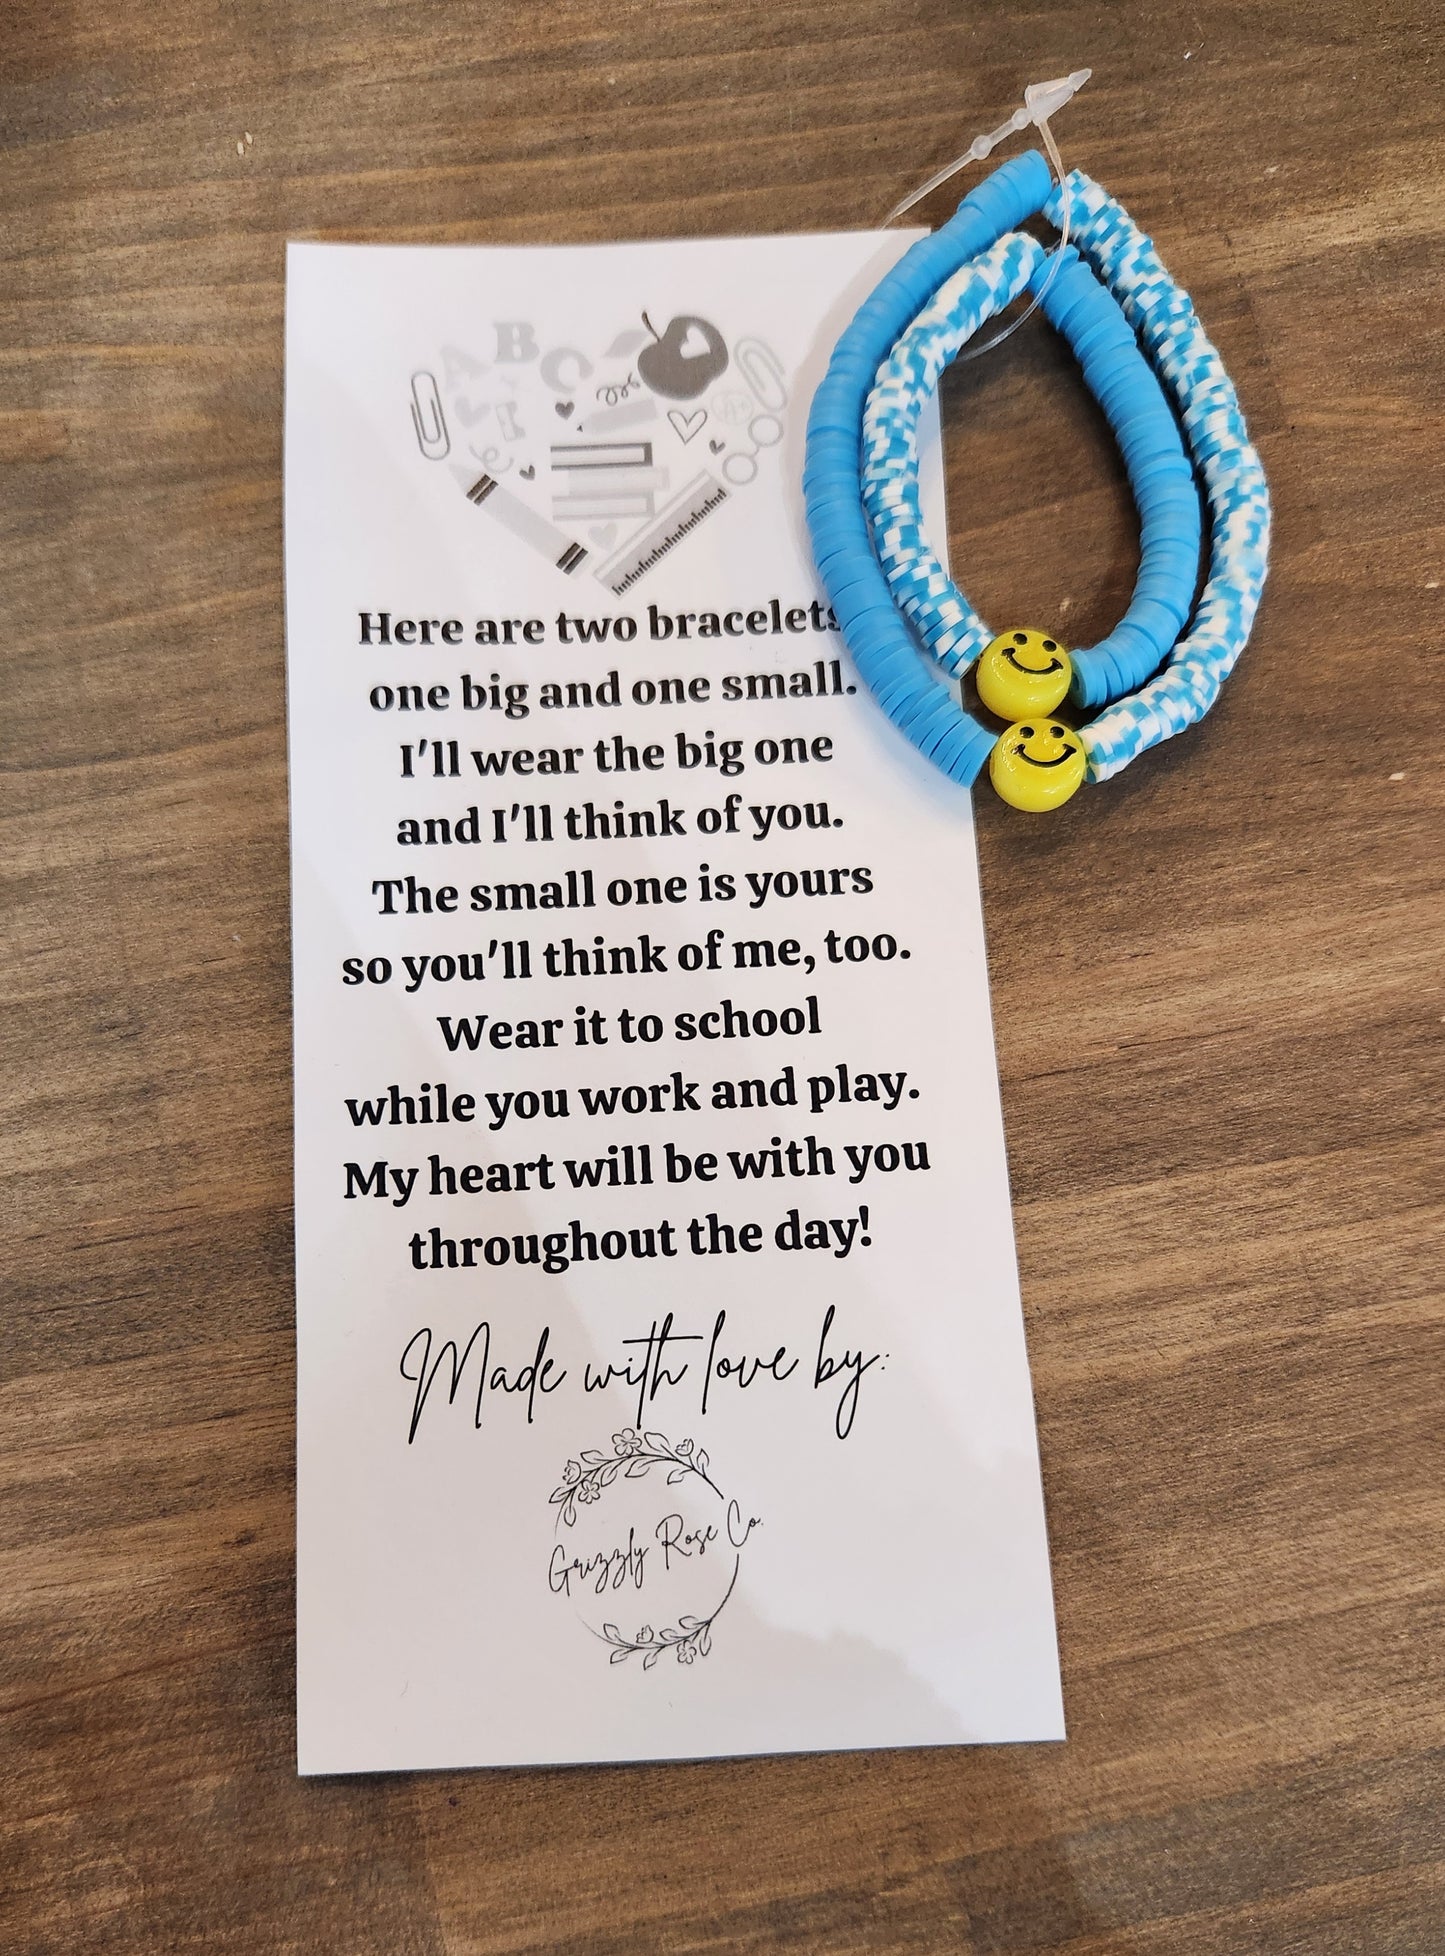 ABC
A+
Here are two bracelets
one big and one small.
I'll wear the big one
and I'll think of you.
The small one is yours
so you'll think of me, too.
Wear it to school
while you work and play.
My heart will be with you
throughout the day!
Made with love by:
Grizzly Rose Co.